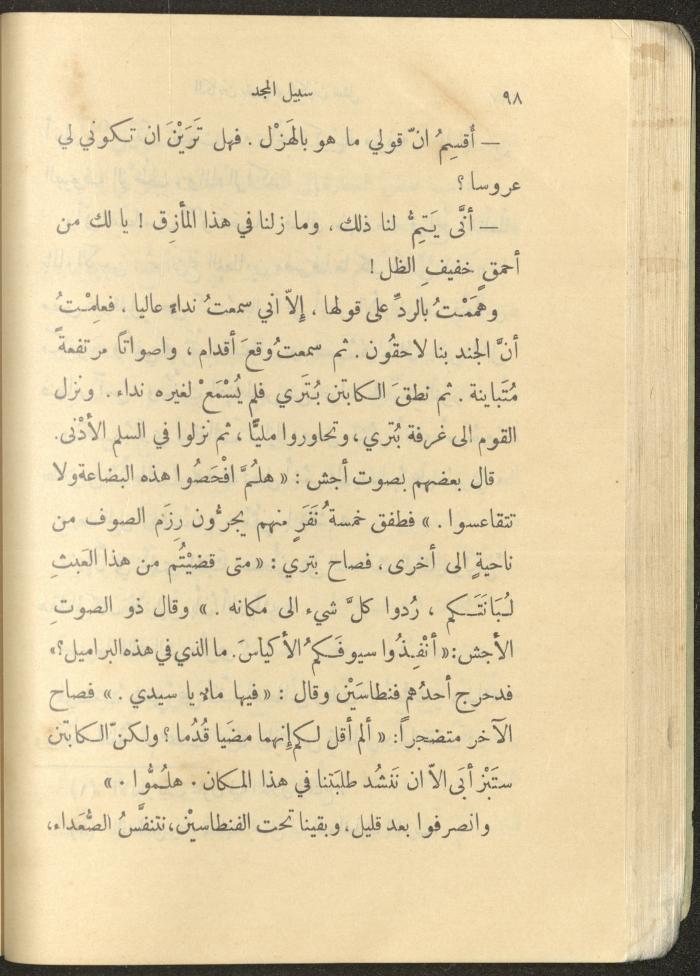 ٩٨ سبيل المجد
— أُقسِمُ انّ قولي ما هو بالهَزْل . فهل تَرَيْنَ ان تكوني لي
عروسا ؟
— أَنَّى يَتِمُّ لنا ذلك ، وما زلنا في هذا المأزِق ! يا لك من
أحمقٍ خفيفِ الظل !
وهَمَمْتُ بالردِّ على قولها ، إِلاّ اني سمعتُ نداءً عاليا . فعلِمْتُ
أنَّ الجند بنا لاحقُون . ثم سمعتُ وقعَ أقدام ، واصواتًا مرتفعةً
مُتَباينة . ثم نطقَ الكابتن بُتَري فلم يُسْمَعْ لغيره نداء . ونزل
القوم الى غرفة بُتري ، وتحاوروا مليًّا ، ثم نزلوا في السلم الأدْنى.
قال بعضهم بصوت أجش : « هلُمَّ افْحَصُوا هذه البضاعة ولا
تتقاعسوا . » فطفق خمسةُ نَفَرٍ منهم يجرُّون رِزَم الصوف من
ناحيةٍ الى أخرى ، فصاح بتري : « متى قضيْتُم من هذا العَبثِ
لُبَانَتَكم ، رُدوا كلَّ شيء الى مكانه . » وقال ذو الصوتِ
الأجش : « أنْفِذُوا سيوفَكمُ الأكياسَ. ما الذي في هذه البراميل؟»
فدحرج أحدُهم فنطاسَيْن وقال : « فيها ماء يا سيدي . » فصاح
الآخر متضجراً : « ألم أقل لكم إِنهما مضَيا قُدُما ؟ ولكنّ الكابتن
ستَبْز أبَى الاّ ان نَنشُد طلبَتنا في هذا المكان . هلُمُّوا . »
وانصرفوا بعد قليل ، وبقينا تحت الفنطاسيْن ، نتنفَّسُ الصُّعَداء ،